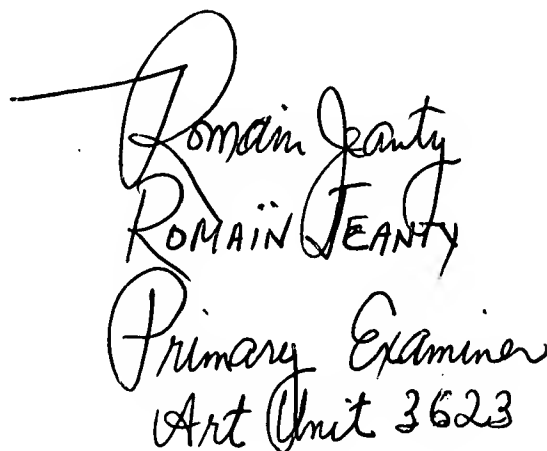 Romain Jeanty
ROMAÏN JEANTY
Primary Examiner
Art Unit 3623